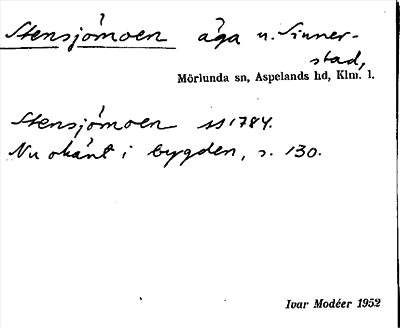 Stensjömoen äga u. Sinner-
stad,
Mörlunda sn, Aspelands hd, Klm. l.
Stensjömoen ss 1784.
Nu okänt i bygden, s. 130.
Ivar Modéer 1952